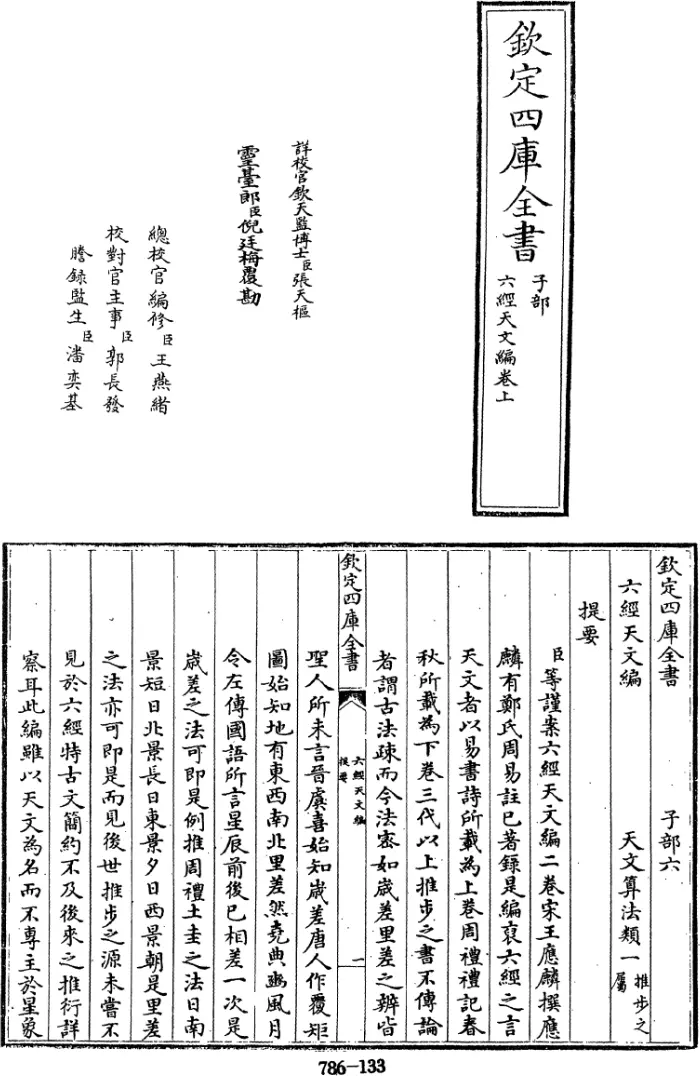 欽定四庫全書
子部
六經天文編卷上
詳校官欽天監博士臣張天樞
靈臺郎臣倪廷梅覆勘
總校官編修臣王燕緒
校對官主事臣郭長發
謄錄監生臣潘奕基
欽定四庫全書 子部六
六經天文編 天文算法類一推步之屬
提要
臣等謹案六經天文編二卷宋王應麟撰應
麟有鄭氏周易註已著錄是編裒六經之言
天文者以易書詩所載為上卷周禮禮記春
秋所載為下卷三代以上推步之書不傳論
者謂古法疎而今法密如歲差里差之辨皆
欽定四庫全書
六經天文編
提要
一
聖人所未言晉虞喜始知歲差唐人作覆矩
圖始知地有東西南北里差然堯典豳風月
令左傳國語所言星辰前後已相差一次是
歲差之法可即是例推周禮土圭之法日南
景短日北景長日東景夕日西景朝是里差
之法亦可即是而見後世推步之源未嘗不
見於六經特古文簡約不及後來之推衍詳
察耳此編雖以天文為名而不專主於星象
786-133